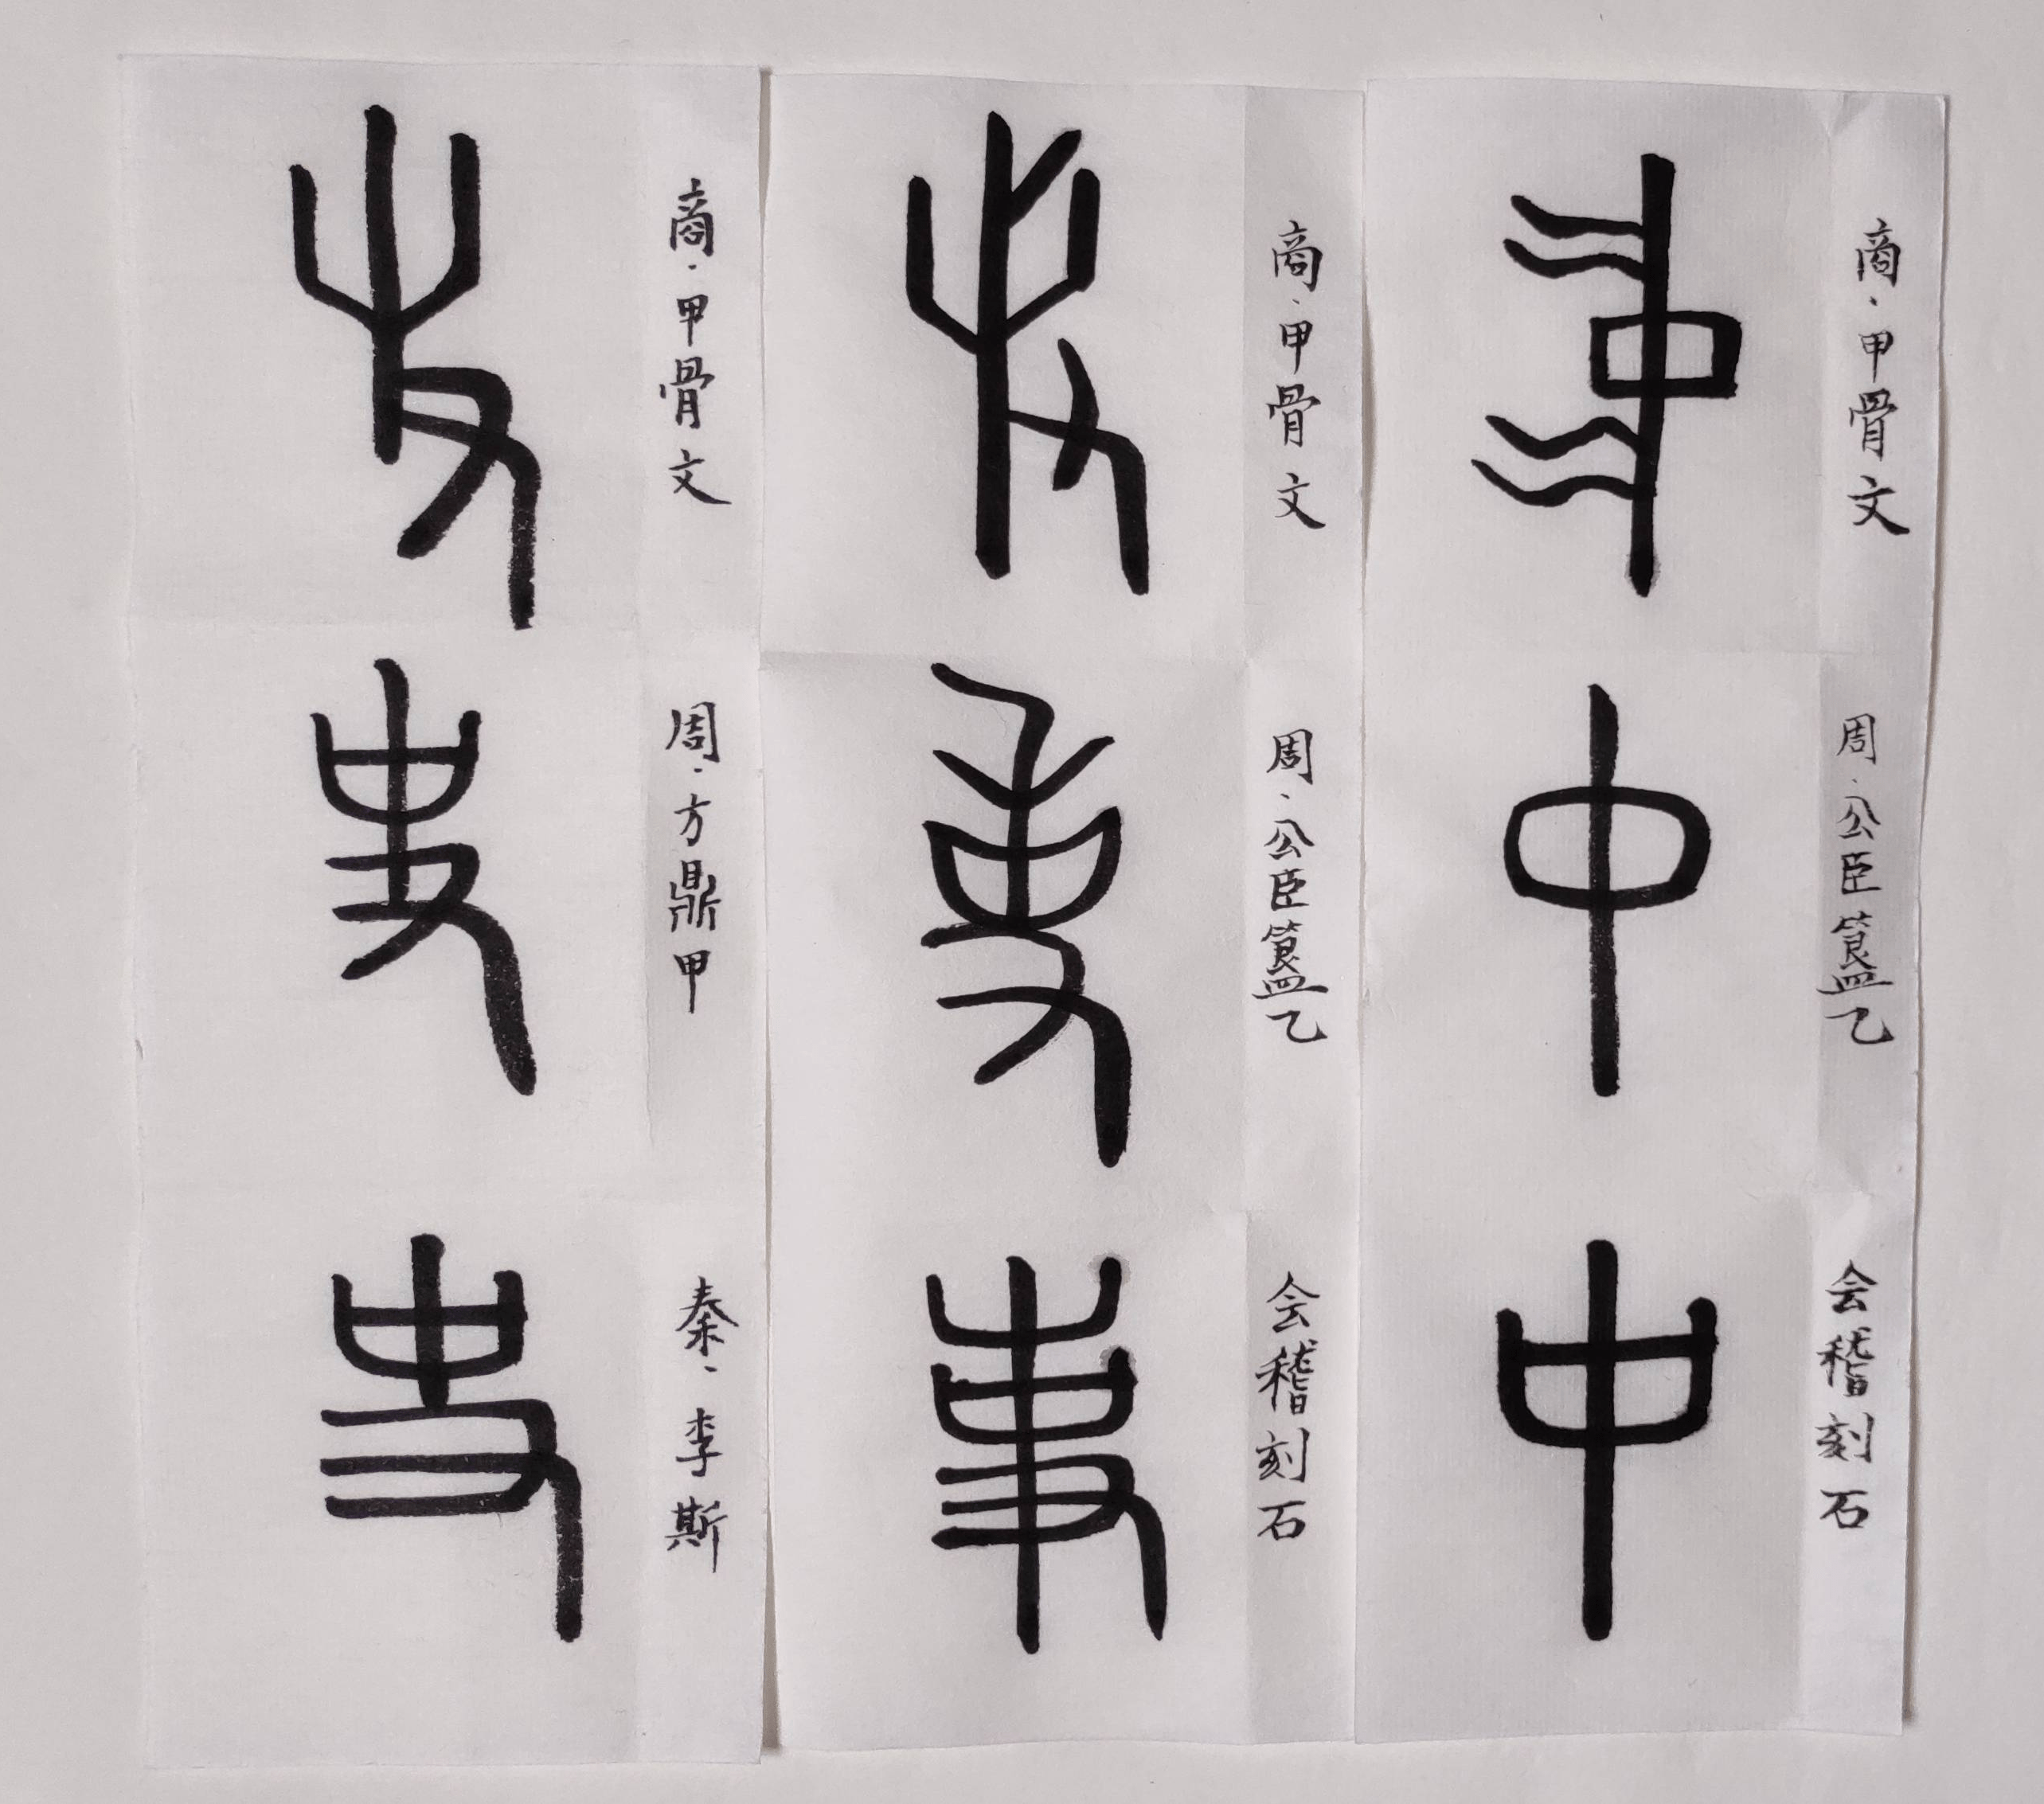 商·甲骨文
中
周·公臣簋乙
中
会稽刻石
中
商·甲骨文
事
周·公臣簋乙
事
会稽刻石
事
商·甲骨文
史
周·方鼎甲
史
秦·李斯
史